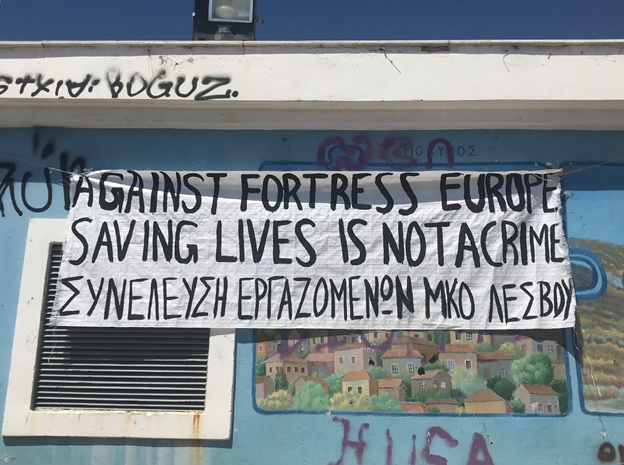 ROGUZ.
AGAINST FORTRESS EUROPE
SAVING LIVES IS NOT A CRIME
ΣΥΝΕΛΕΥΣΗ ΕΡΓΑΖΟΜΕΝΩΝ ΜΚΟ ΛΕΣΒΟΥ